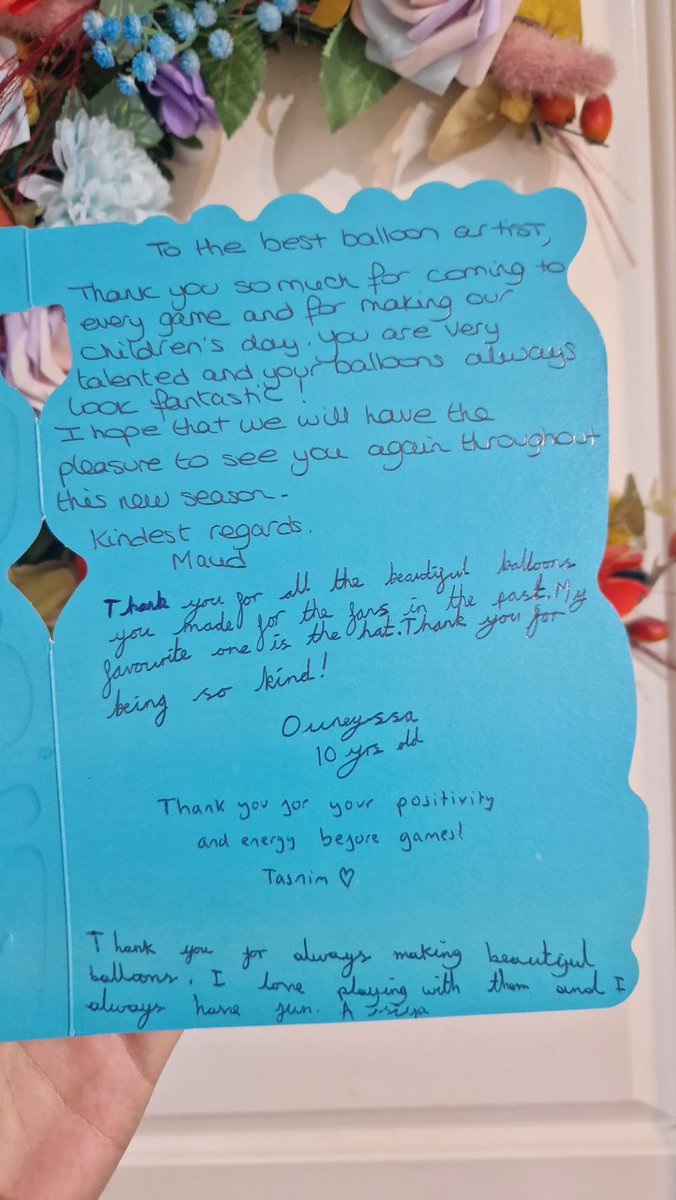 To the best balloon artist,
Thank you so much for coming to
every game and for making our
children's day. you are very
talented and your balloons always
look fantastic!
I hope that we will have the
pleasure to see you again throughout
this new season.
Kindest regards.
Maud
Thank you for all the beautiful balloons
you made for the fans in the past. My
favourite one is the hat. Thank you for
being so kind!
Ouneyssa
10 yrs old
Thank you for your positivity
and energy before games!
Tasnim ♡
Thank you for always making beautiful
balloons. I love playing with them and I
always have fun.